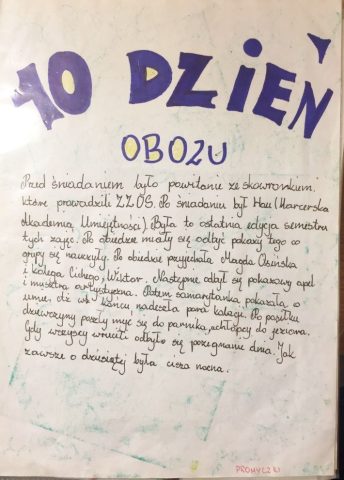 10 DZIEŃ
OBOZU
Przed śniadaniem było powitanie ze skowronkiem,
które prowadzili ZZOS. Po śniadaniu był Hau (Harcerska
Akademia Umiejętności). Była to ostatnia edycja semestru
tych zajęć. Po obiedzie miały się odbyć pokazy tego co
grupy się nauczyły. Po obiedzie przyjechała Magda Osińska
i kolega Cichego, Wiktor. Następnie odbył się pokazowy apel
i musztra artystyczna. Potem samarytanka pokazała co
umie, aż w końcu nadeszła pora kolacji. Po posiłku
dziewczyny poszły myć się do parnika, a chłopcy do jeziora.
Gdy wszyscy wrócili odbyło się pożegnanie dnia. Jak
zawsze o dziesiątej była cisza nocna.
PROMYCZKI